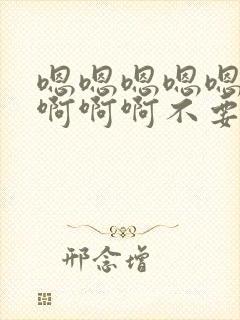 嗯嗯嗯嗯嗯
啊啊啊不要
邢念增